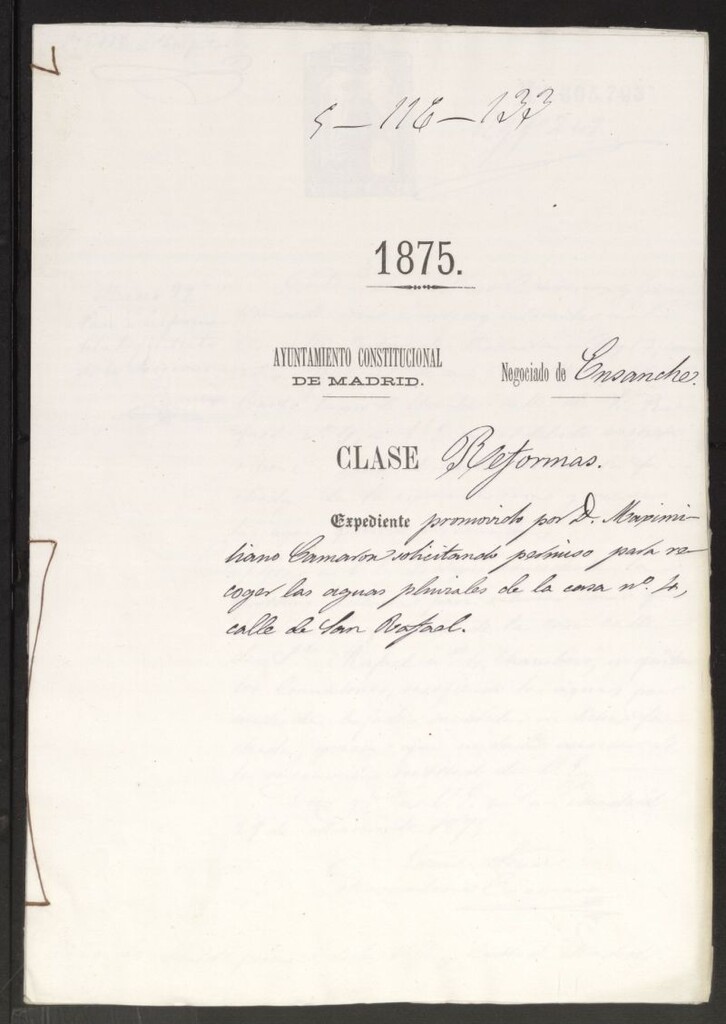 5-116-133
1875.
AYUNTAMIENTO CONSTITUCIONAL
DE MADRID.
Negociado de Ensanche.
CLASE Reformas.
Expediente promovido por D. Maximi-
liano Camaron solicitando permiso para re-
coger las aguas pluviales de la casa nº. 4,
calle de San Rafael.